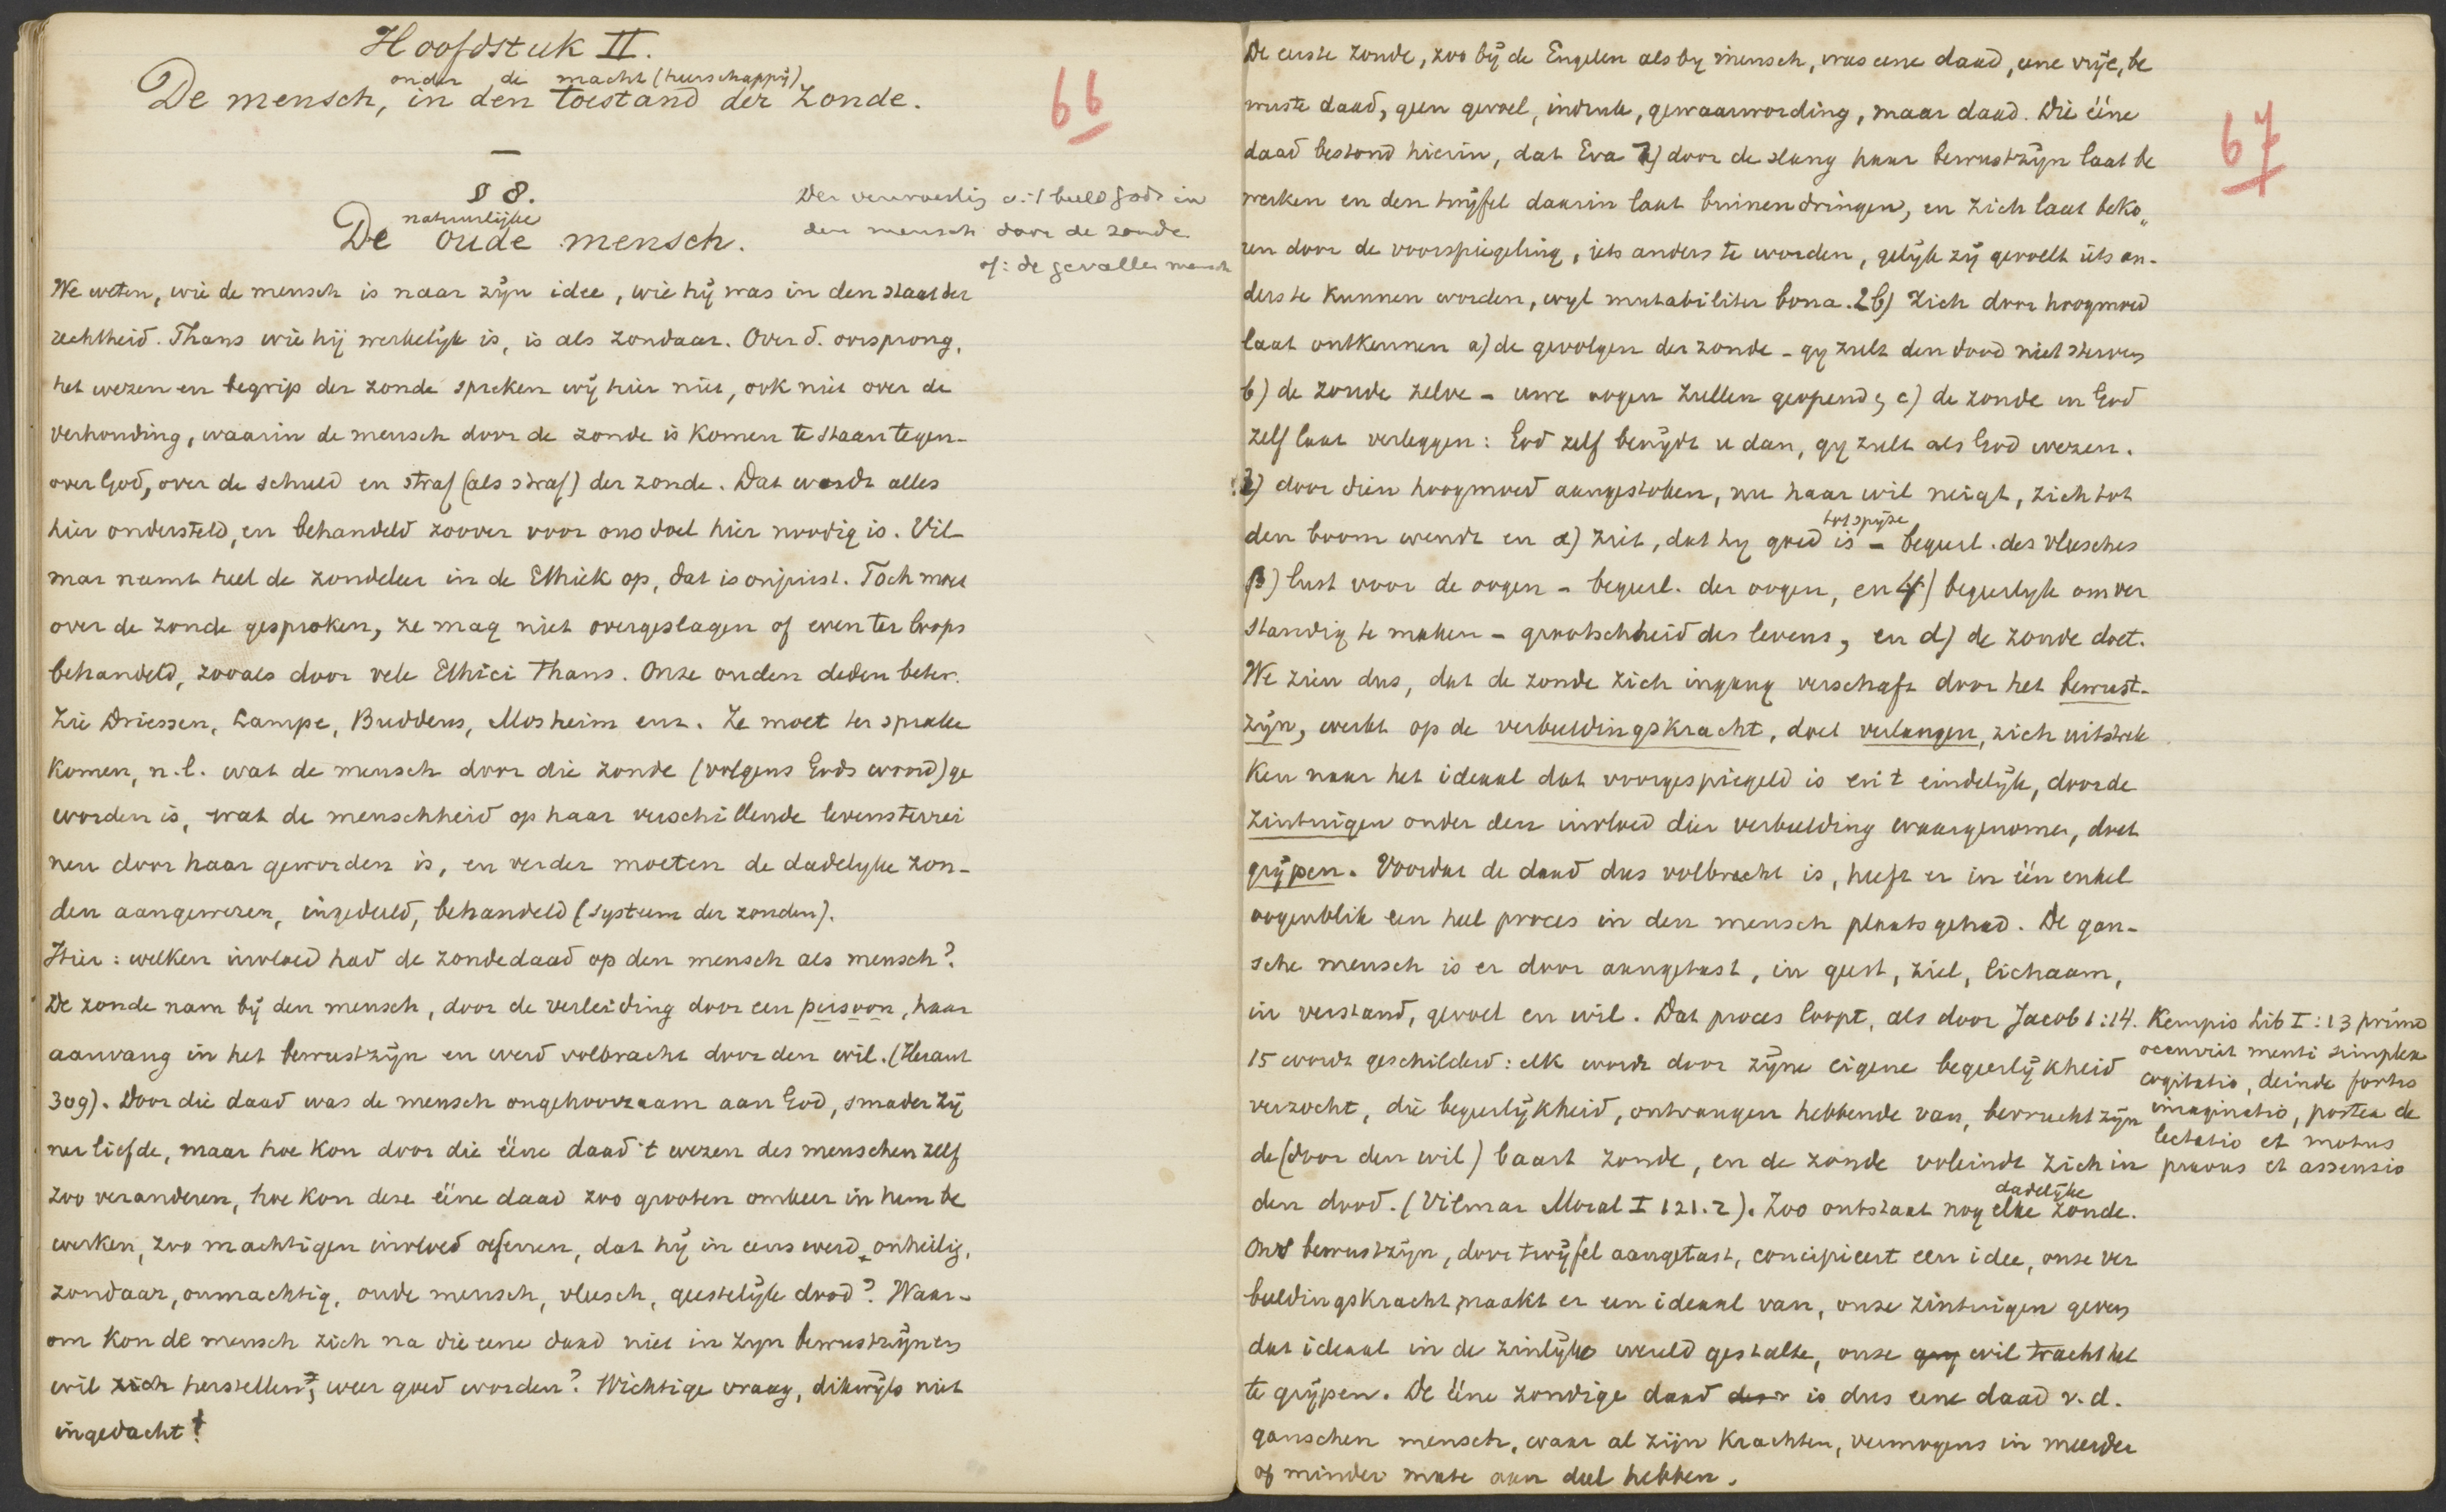 Hoofdstuk II.
onder de macht (heerschappij)
De mensch, in den toestand der zonde.
66
§ 8.
natuurlijke
De oude mensch.
Der verwoesting v. 't beeld Gods in
den mensch door de zonde
of: de gevallen mensch
We weten, wie de mensch is naar zijn idee, wie hij was in den staat der
rechtheid. Thans wie hij werkelijk is, is als zondaar. Over d. oorsprong,
het wezen en begrip der zonde spreken wij hier niet, ook niet over de
verhouding, waarin de mensch door de zonde is komen te staan tegen-
over God, over de schuld en straf (als straf) der zonde. Dat wordt alles
hier ondersteld, en behandeld zoover voor ons doel hier noodig is. Vil-
mar neemt heel de zondeleer in de Ethiek op, dat is onjuist. Toch moet
over de zonde gesproken, ze mag niet overgeslagen of even ter loops
behandeld, zooals door vele Ethici thans. Onze ouden deden beter.
Zie Driessen, Lampe, Buddeus, Mosheim enz. Ze moet ter sprake
komen, n.l. wat de mensch door die zonde (volgens Gods woord) ge
worden is, wat de menschheid op haar verschillende levensterrei
nen door haar geworden is, en verder moeten de dadelijke zon-
den aangewezen, ingedeeld, behandeld (systeem der zonden).
Hier: welken invloed had de zondedaad op den mensch als mensch?
De zonde nam bij den mensch, door de verleiding door een persoon, haar
aanvang in het bewustzijn en werd volbracht door den wil. (Heraut
309). Door die daad was de mensch ongehoorzaam aan God, smader zij
ner liefde, maar hoe kon door die ééne daad 't wezen des menschen zelf
zoo veranderen, hoe kon deze ééne daad zoo grooten omkeer in hem be
werken, zoo machtigen invloed oefenen, dat hij in eens werd onheilig,
zondaar, onmachtig, oude mensch, vleesch, geestelijk dood? Waar-
om kon de mensch zich na die eene daad niet in zijn bewustzijn en
wil zich herstellen, weer goed worden? Wichtige vraag, dikwijls niet
ingedacht!
De eerste zonde, zoo bij de Engelen als bij mensch, was eene daad, eene vrije, be
wuste daad, geen gevoel, indruk, gewaarwording, maar daad. Die ééne
67
daad bestond hierin, dat Eva 1) door de slang haar bewustzijn laat be
werken en den twijfel daarin laat binnendringen, en zich laat beko„
ren door de voorspiegeling, iets anders te worden, gelijk zij gevoelt iets an-
ders te kunnen worden, wijl mutabiliter bona. 2b) Zich door hoogmoed
laat ontkennen a) de gevolgen der zonde - gij zult den dood niet sterven
b) de zonde zelve - uwe oogen zullen geopend, c) de zonde in God
zelf laat verleggen: God zelf benijdt u dan, gij zult als God wezen.
3) door dien hoogmoed aangestoken, nu haar wil neigt, zich tot
tot spijze
den boom wendt en α) ziet, dat hij goed is - begeerl. des vleesches
β) lust voor de oogen - begeerl. der oogen, en γ) begeerlijk om ver
standig te maken - grootschheid des levens, en d) de zonde doet.
We zien dus, dat de zonde zich ingang verschaft door het bewust-
zijn, werkt op de verbeeldingskracht, doet verlangen, zich uitstrek
ken naar het ideaal dat voorgespiegeld is en 't eindelijk, door de
zintuigen onder den invloed dier verbeelding waargenomen, doet
grijpen. Voordat de daad dus volbracht is, heeft er in één enkel
oogenblik een heel proces in den mensch plaats gehad. De gan-
sche mensch is er door aangetast, in geest, ziel, lichaam,
in verstand, gevoel en wil. Dat proces loopt, als door Jacob 1:14.
15 wordt geschilderd: elk wordt door zijne eigene begeerlijkheid
verzocht, die begeerlijkheid, ontvangen hebbende van, bevrucht zijn
de (door den wil) baart zonde, en de zonde voleindt zich in
den dood. (Vilmar Moral I 121.2). Zoo ontstaat nog elke zonde.
dadelijke
Kempis Lib I:13 primo
occurrit menti simplex
cogitatio, deinde fortis
imaginatio, postea de
lectatio et motus
pravus et assensio
Ons bewustzijn, door twijfel aangetast, concipieert een idee, onze ver
beeldingskracht maakt er een ideaal van, onze zintuigen geven
dat ideaal in de zinlijke wereld gestalte, onze wil tracht het
te grijpen. De ééne zondige daad is dus eene daad v.d.
ganschen mensch, waar al zijn krachten, vermogens in meerder
of minder mate aan deel hebben.